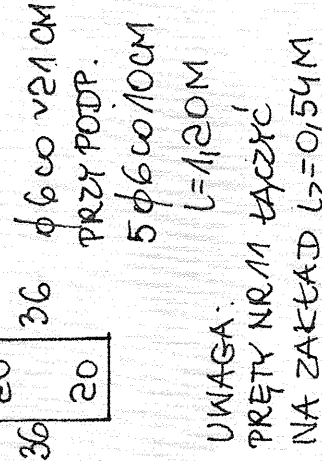 36
20
20
36
ϕ6 co ~21 CM
PRZY PODP.
5ϕ6 co 10CM
L=1,20M
UWAGA:
PRĘTY NR11 ŁĄCZYĆ
NA ZAKŁAD L=0,54M